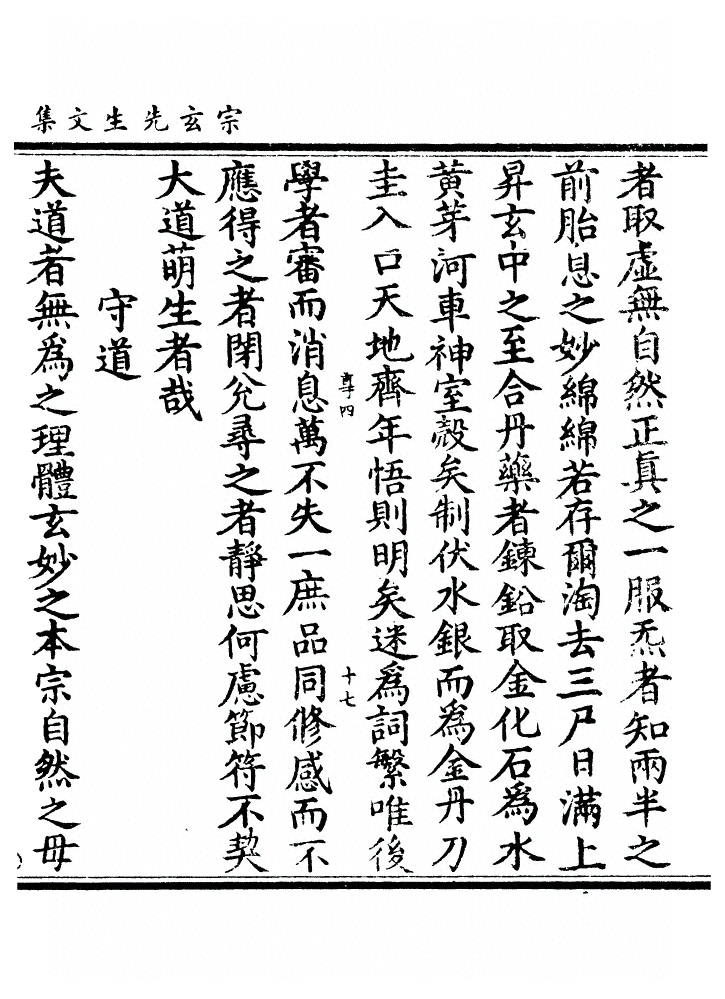 宗玄先生文集
者取虛無自然正真之一服炁者知兩半之
前胎息之妙綿綿若存爾淘去三尸日滿上
昇玄中之至合丹藥者鍊鉛取金化石爲水
黃芽河車神室殼矣制伏水銀而爲金丹刀
圭入口天地齊年悟則明矣迷爲詞繁唯後
尊四 十七
學者審而消息萬不失一庶品同修感而不
應得之者閉兊尋之者靜思何慮節符不契
大道萌生者哉
守道
夫道者無爲之理體玄妙之本宗自然之母